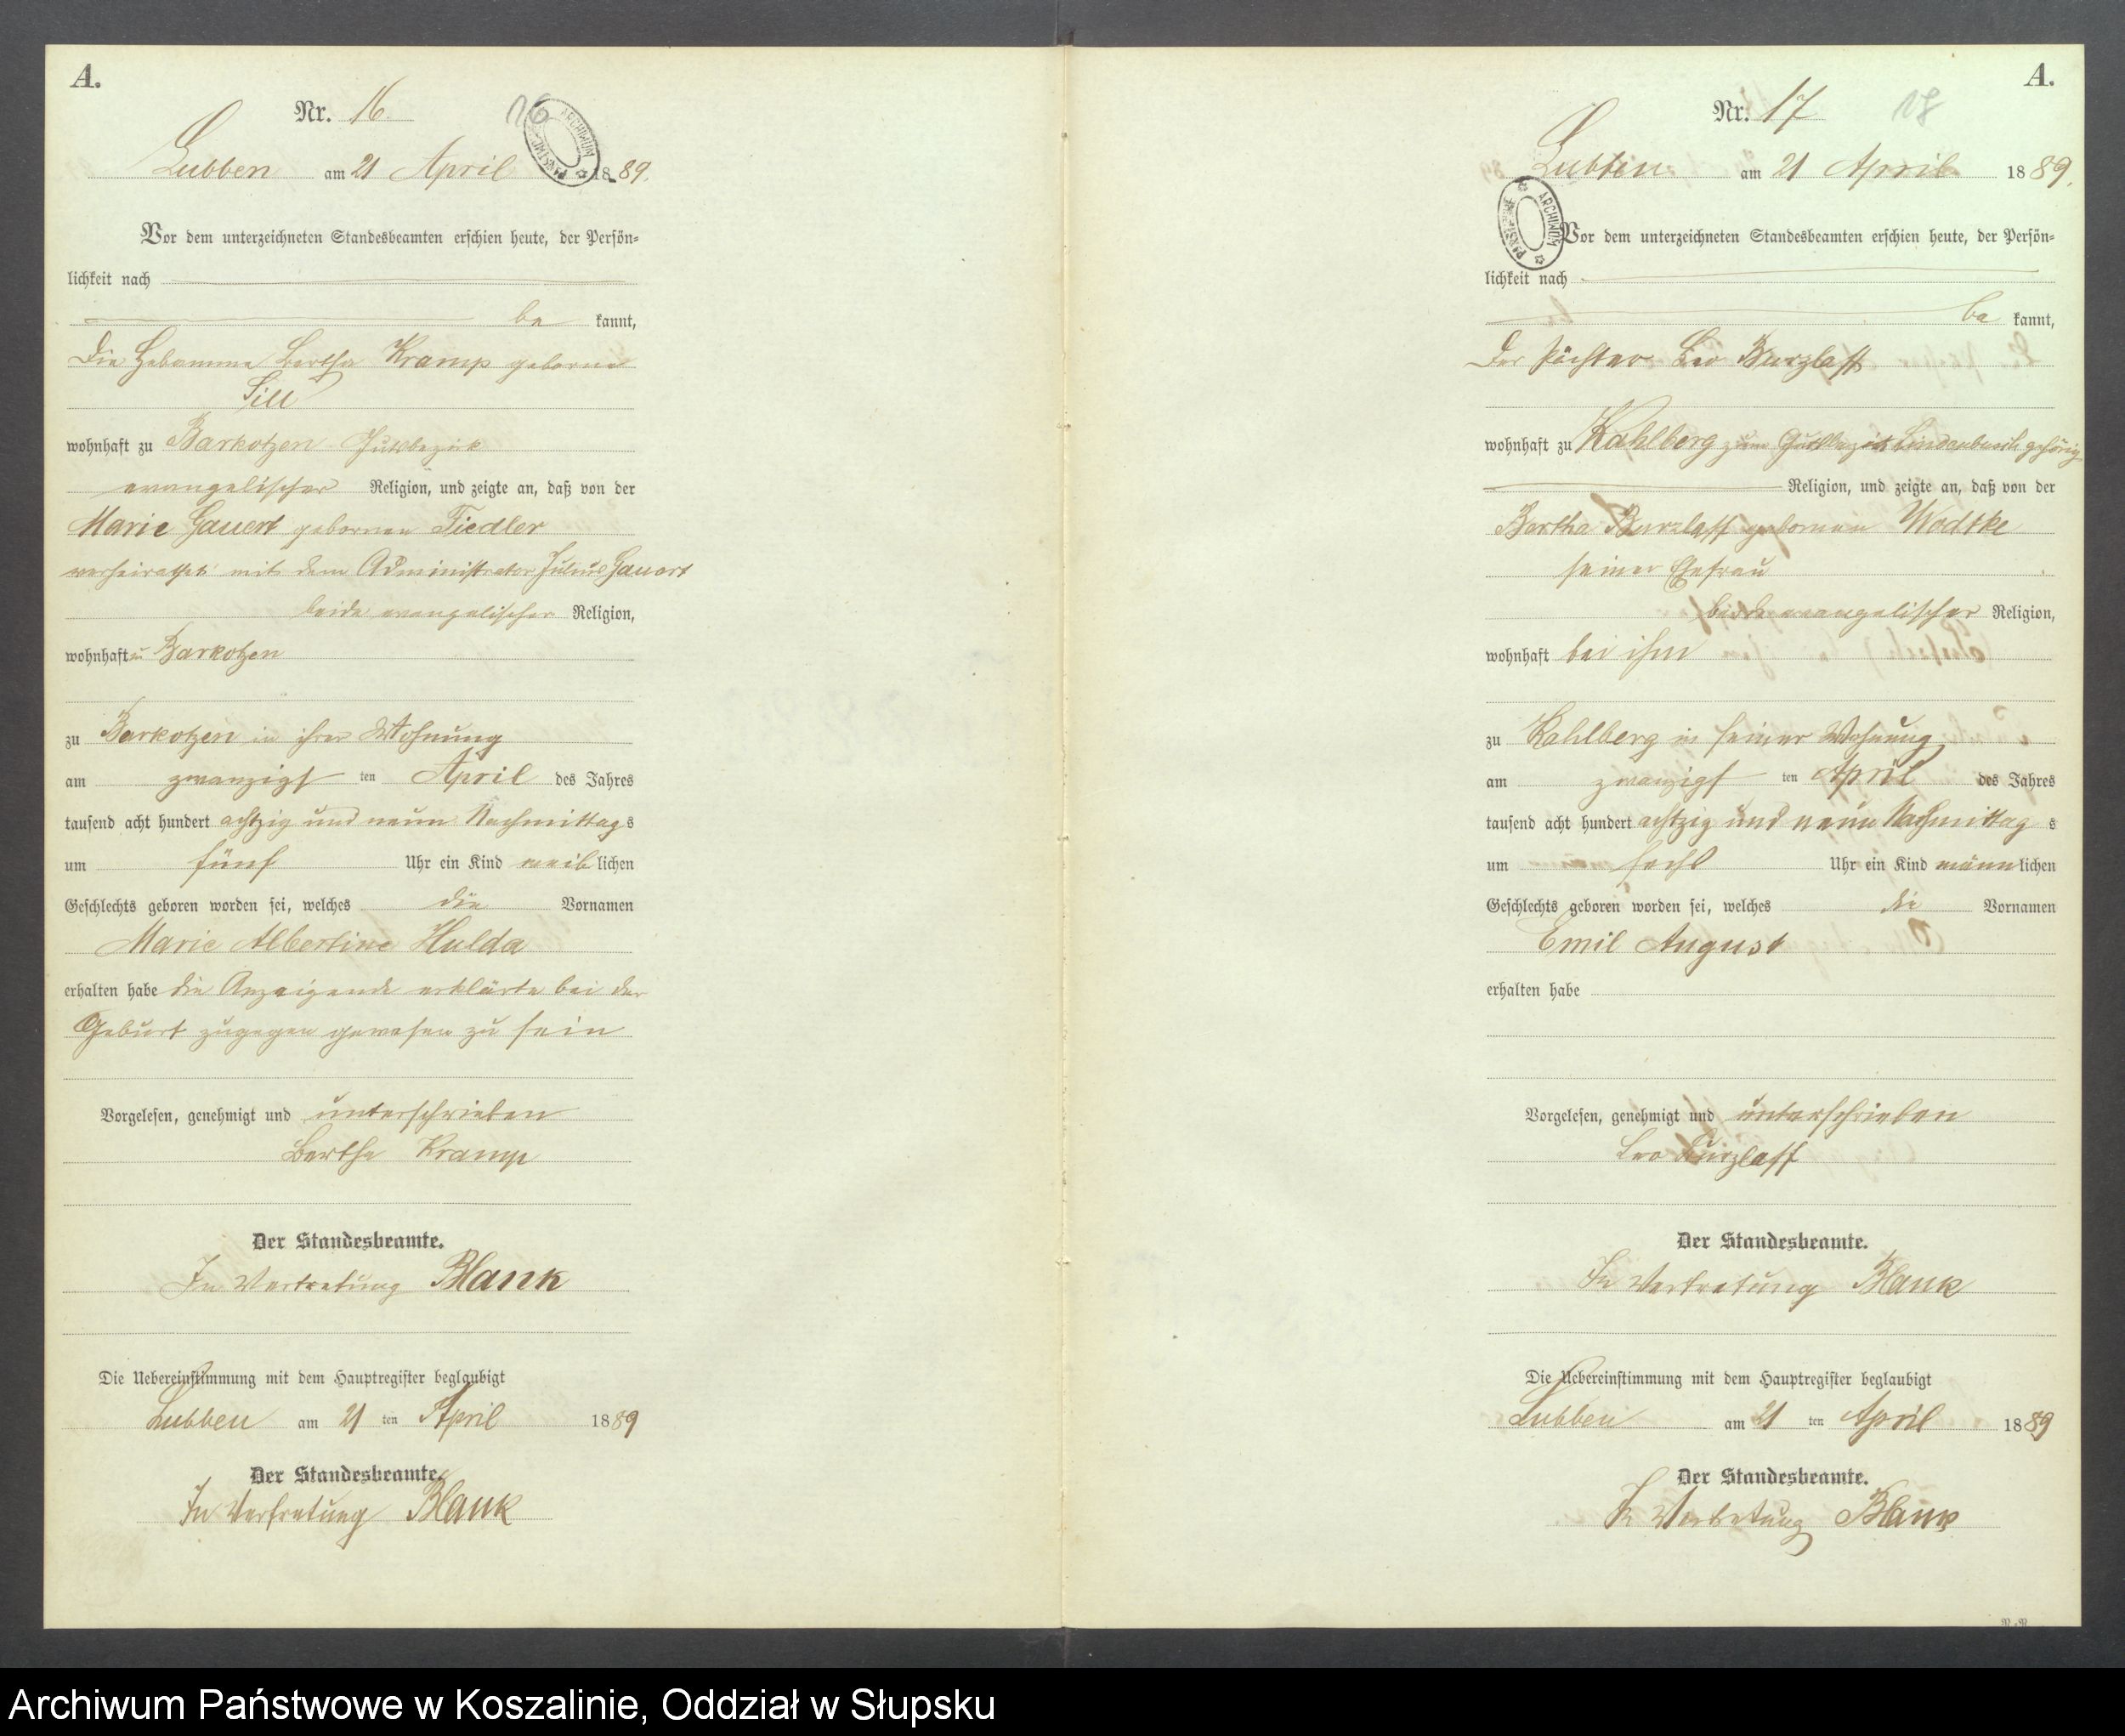 A.
Nr. 16
16
Lubben am 21 April 1889.
Vor dem unterzeichneten Standesbeamten erschien heute, der Persön=
lichkeit nach
be kannt,
Die Hebamme Bertha Kramp geborne
Sill
wohnhaft zu Barkotzen Gutsbezirk
evangelischer Religion, und zeigte an, daß von der
Marie Gauert gebornen Fiedler
verheirathet mit dem Administrator Julius Gauert
beide evangelischer Religion,
wohnhaft zu Barkotzen
zu Barkotzen in ihrer Wohnung
am zwanzigsten April des Jahres
tausend acht hundert achtzig und neun Nachmittags
um fünf Uhr ein Kind weiblichen
Geschlechts geboren worden sei, welches die Vornamen
Marie Albertine Hulda
erhalten habe die Anzeigende erklärte bei der
Geburt zugegen gewesen zu sein
Vorgelesen, genehmigt und unterschrieben
Bertha Kramp
Der Standesbeamte.
In Vertretung Blank
Die Uebereinstimmung mit dem Hauptregister beglaubigt
Lubben am 21 ten April 1889
Der Standesbeamte.
In Vertretung Blank
A.
Nr. 17
Lubben am 21 April 1889.
ARCHIWUM PAŃSTWOWE
Vor dem unterzeichneten Standesbeamten erschien heute, der Persön=
lichkeit nach
be kannt,
Der Pächter Leo Burzlaff
wohnhaft zu Kahlberg zum Gutsbezirk Lindenbusch gehörig
Religion, und zeigte an, daß von der
Bertha Burzlaff gebornen Wodtke
seiner Ehefrau
beide evangelischer Religion,
wohnhaft bei ihm
zu Kahlberg in seiner Wohnung
am zwanzigsten April des Jahres
tausend acht hundert achtzig und neun Nachmittags
um sechs Uhr ein Kind männlichen
Geschlechts geboren worden sei, welches die Vornamen
Emil August
erhalten habe
Vorgelesen, genehmigt und unterschrieben
Leo Burzlaff
Der Standesbeamte.
In Vertretung Blank
Die Uebereinstimmung mit dem Hauptregister beglaubigt
Lubben am 21 ten April 1889
Der Standesbeamte.
In Vertretung Blank
Archiwum Państwowe w Koszalinie, Oddział w Słupsku